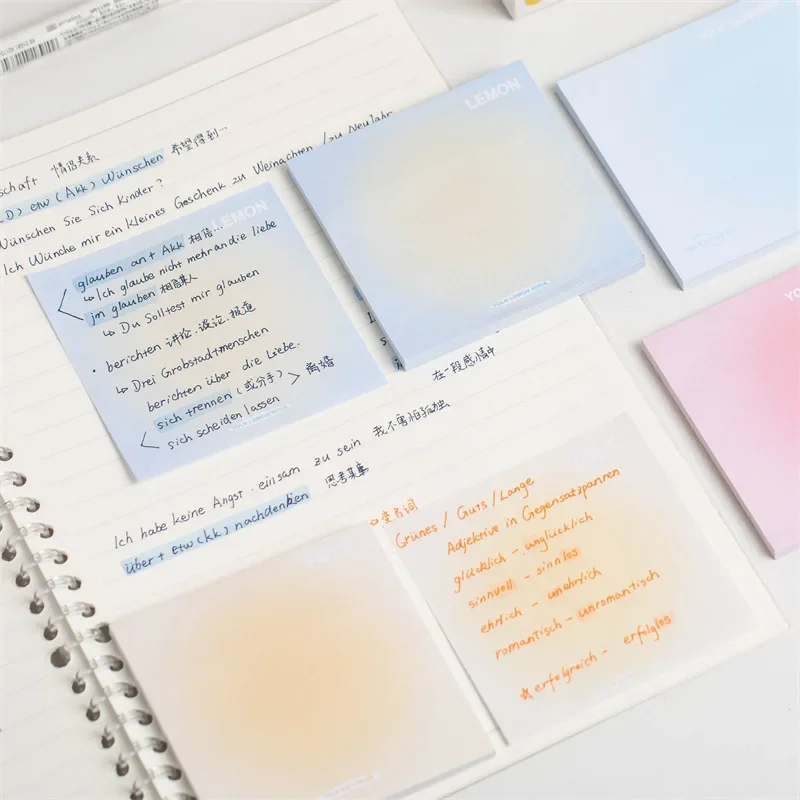 schaft 情侣关系
(D) etw (Akk) Wünschen 希望得到…
Wünschen Sie Sich Kinder?
Ich Wünche mir ein kleines Geschenk zu Weinachten / zu Neujahr
LEMON
glauben an + Akk 相信…
↳ Ich glaube nicht mehr an die liebe
jm glauben 相信某人
↳ Du Solltest mir glauben
• berichten 讲论.谈论.报道
↳ Drei Grobstadtmenschen
berichten über die Liebe.
sich trennen (或分手) > 离婚
sich scheiden lassen
YOUR LEMON SODA
LEMON
YOUR LEMON SODA
YOUR SUMMER
YO
在一段感情中
Ich habe keine Angst. einsam zu sein 我不害怕孤独
über + etw (kk) nachdenken 思考某事
Grünes / Guts / Lange
Adjektive in Gegensatzpanren
glücklich - unglücklich
sinnvoll - sinnlos
ehrlich - unehrlich
romantisch - unromantisch
☆ erfolgreich - erfolglos